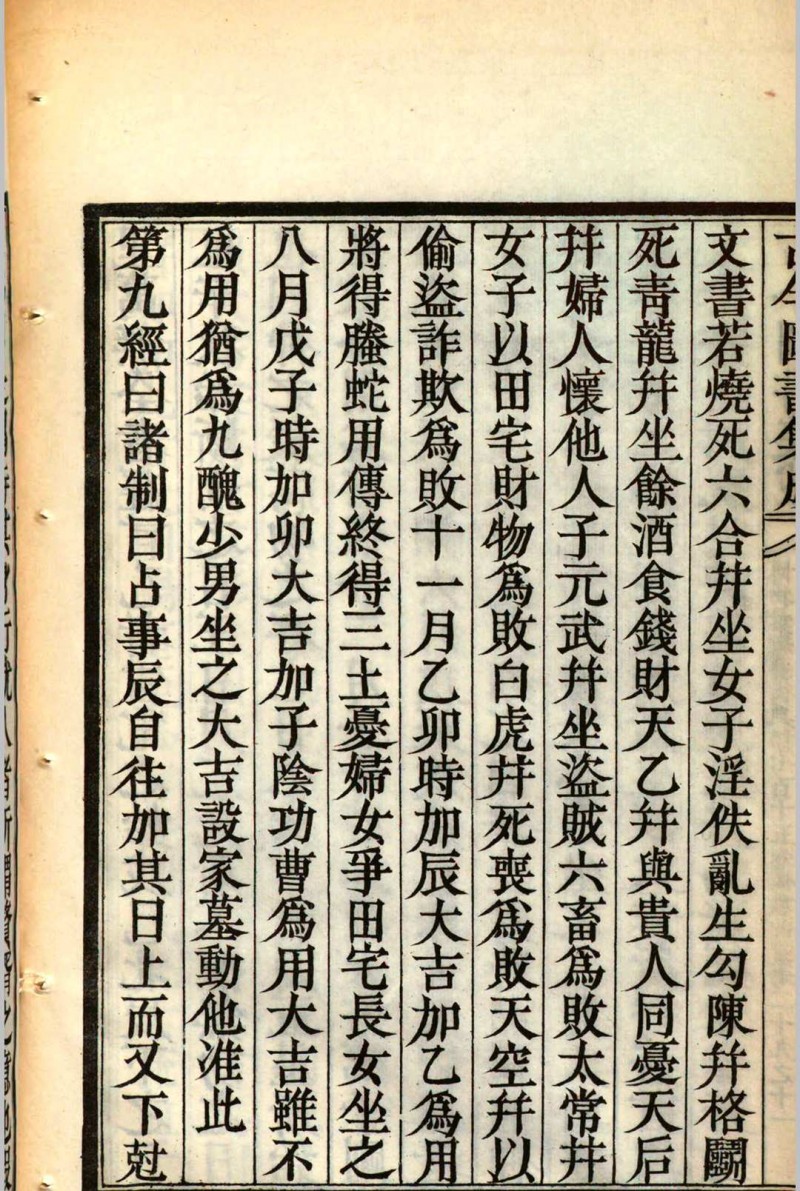 古今圖書集成
文書若燒死六合幷坐女子淫佚亂生勾陳幷格鬭
死靑龍幷坐餘酒食錢財天乙幷與貴人同憂天后
幷婦人懷他人子元武幷坐盜賊六畜爲敗太常幷
女子以田宅財物爲敗白虎幷死喪爲敗天空幷以
偷盜詐欺爲敗十一月乙卯時加辰大吉加乙爲用
將得螣蛇用傳終得三土憂婦女爭田宅長女坐之
八月戊子時加卯大吉加子陰功曹爲用大吉雖不
爲用猶爲九醜少男坐之大吉設家墓動他准此
第九經曰諸制日占事辰自往加其日上而又下尅